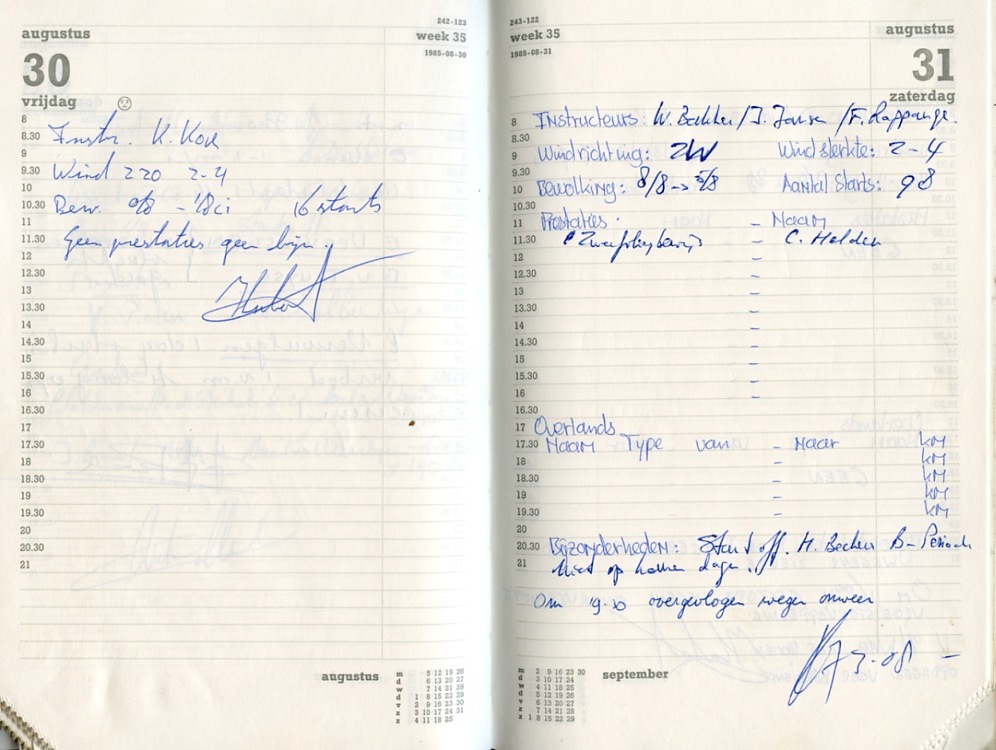 242-123
augustus
week 35
1985-08-30
30
vrijdag
8
8.30
Instr. K. Kok
9
9.30
Wind 220 2-4
10
10.30
Bew. 0/8 - 1/8 ci 16 starts
11
11.30
Geen prestaties geen bijz.
12
12.30
13
13.30
14
14.30
15
15.30
16
16.30
17
17.30
18
18.30
19
19.30
20
20.30
21
augustus
m 5 12 19 26
d 6 13 20 27
w 7 14 21 28
d 1 8 15 22 29
v 2 9 16 23 30
z 3 10 17 24 31
z 4 11 18 25
243-122
week 35
augustus
1985-08-31
31
zaterdag
8 Instructeurs: W. Bakker / J. Jansen /
8.30
9 Windrichting: ZW Windsterkte: 2-4
9.30
10 Bewolking: 8/8 -> 5/8 Aantal starts: 98
10.30
11 Prestaties: - Naam
11.30 Zweefvliegbewijs - C. Helden
12 -
12.30 -
13 -
13.30 -
14 -
14.30 -
15 -
15.30 -
16 -
16.30
17 Overlands
17.30 Naam Type van - Naar KM
18 - KM
18.30 - KM
19 - KM
19.30 - KM
20
20.30 Bijzonderheden: Start off. H. Becker B-Periode
21 op dagen.
Om 19.30 overgevlogen wegen onweer
september
m 2 9 16 23 30
d 3 10 17 24
w 4 11 18 25
d 5 12 19 26
v 6 13 20 27
z 7 14 21 28
z 1 8 15 22 29